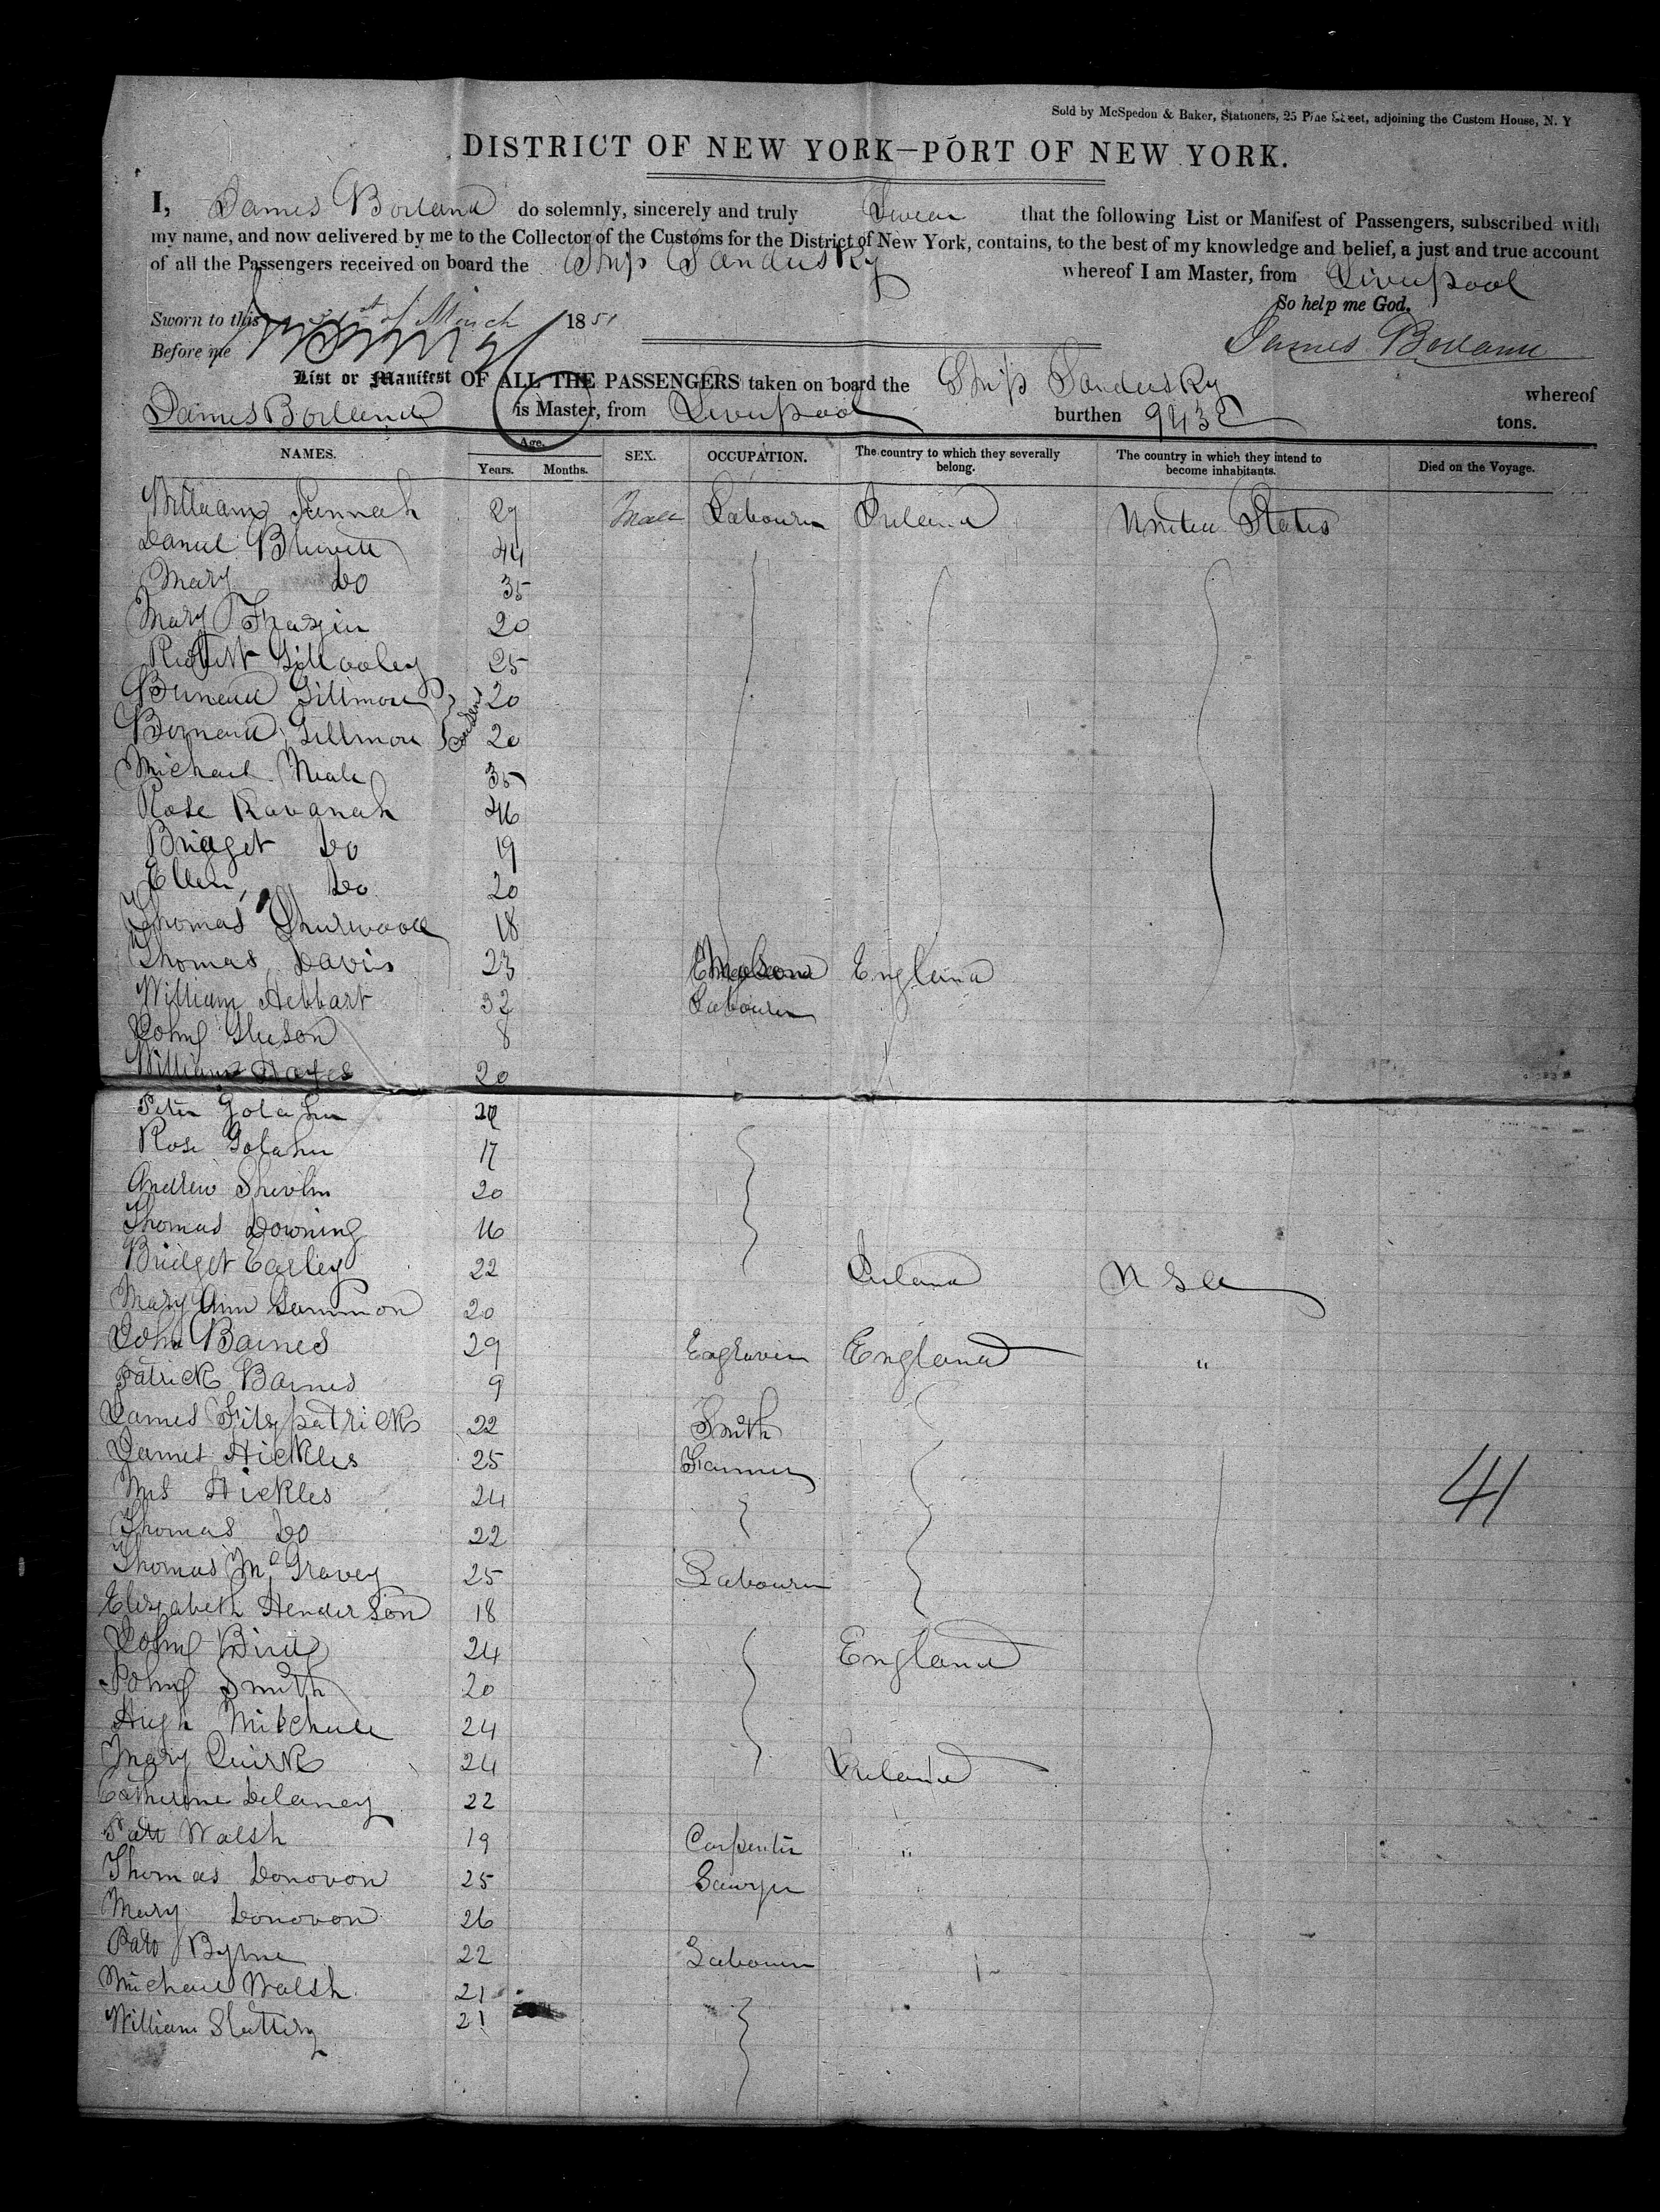 Sold by McSpedon & Baker, Stationers, 25 Pine Street, adjoining the Custom House, N. Y
DISTRICT OF NEW YORK—PORT OF NEW YORK.
I, James Borland do solemnly, sincerely and truly Swear that the following List or Manifest of Passengers, subscribed with
my name, and now delivered by me to the Collector of the Customs for the District of New York, contains, to the best of my knowledge and belief, a just and true account
of all the Passengers received on board the Ship Sandusky whereof I am Master, from Liverpool
So help me God.
Sworn to this of March 1851
James Borland
Before me
List or Manifest OF ALL THE PASSENGERS taken on board the Ship Sandusky whereof
James Borland is Master, from Liverpool burthen tons.
NAMES. Age. Years. Months. SEX. OCCUPATION. The country to which they severally belong. The country in which they intend to become inhabitants. Died on the Voyage.
William 29 Male Labourer Ireland United States
Daniel 44
Mary Do 35
Mary 20
Gillooley 25
Bernard Gillmore 20
Bernard Gillmore 20
Michael 35
Rose Kavanah 46
Bridget Do 19
Ellen, Do 20
Thomas Shurwood 18
Thomas Davis 23 England
William Hebbart 32 Labourer
John Gleeson 8
William Hayes 20
Peter Golahn
Rose Golahn 17
Andrew Shevlin 20
Thomas Downing 16
Bridget Earley 22 Ireland U S A
Mary Ann Sammon 20
John Barnes 29 Engraver England "
Patrick Barnes 9
James Fitzpatrick 22 Smith
James Hickles 25 Farmer
Mrs Hickles 24
Thomas Do 22
Thomas McGravey 25 Labourer
41
Elizabeth Henderson 18
John Bird 24 England
John Smith 20
Hugh Mitchell 24
Mary Quirk 24 Ireland
Catherine Delaney 22
Patt Walsh 19 Carpenter "
Thomas Donovon 25 Sawyer
Mary Donovon 26
Patt Byrne 22 Labourer
Michael Walsh 21
William Slattery 21